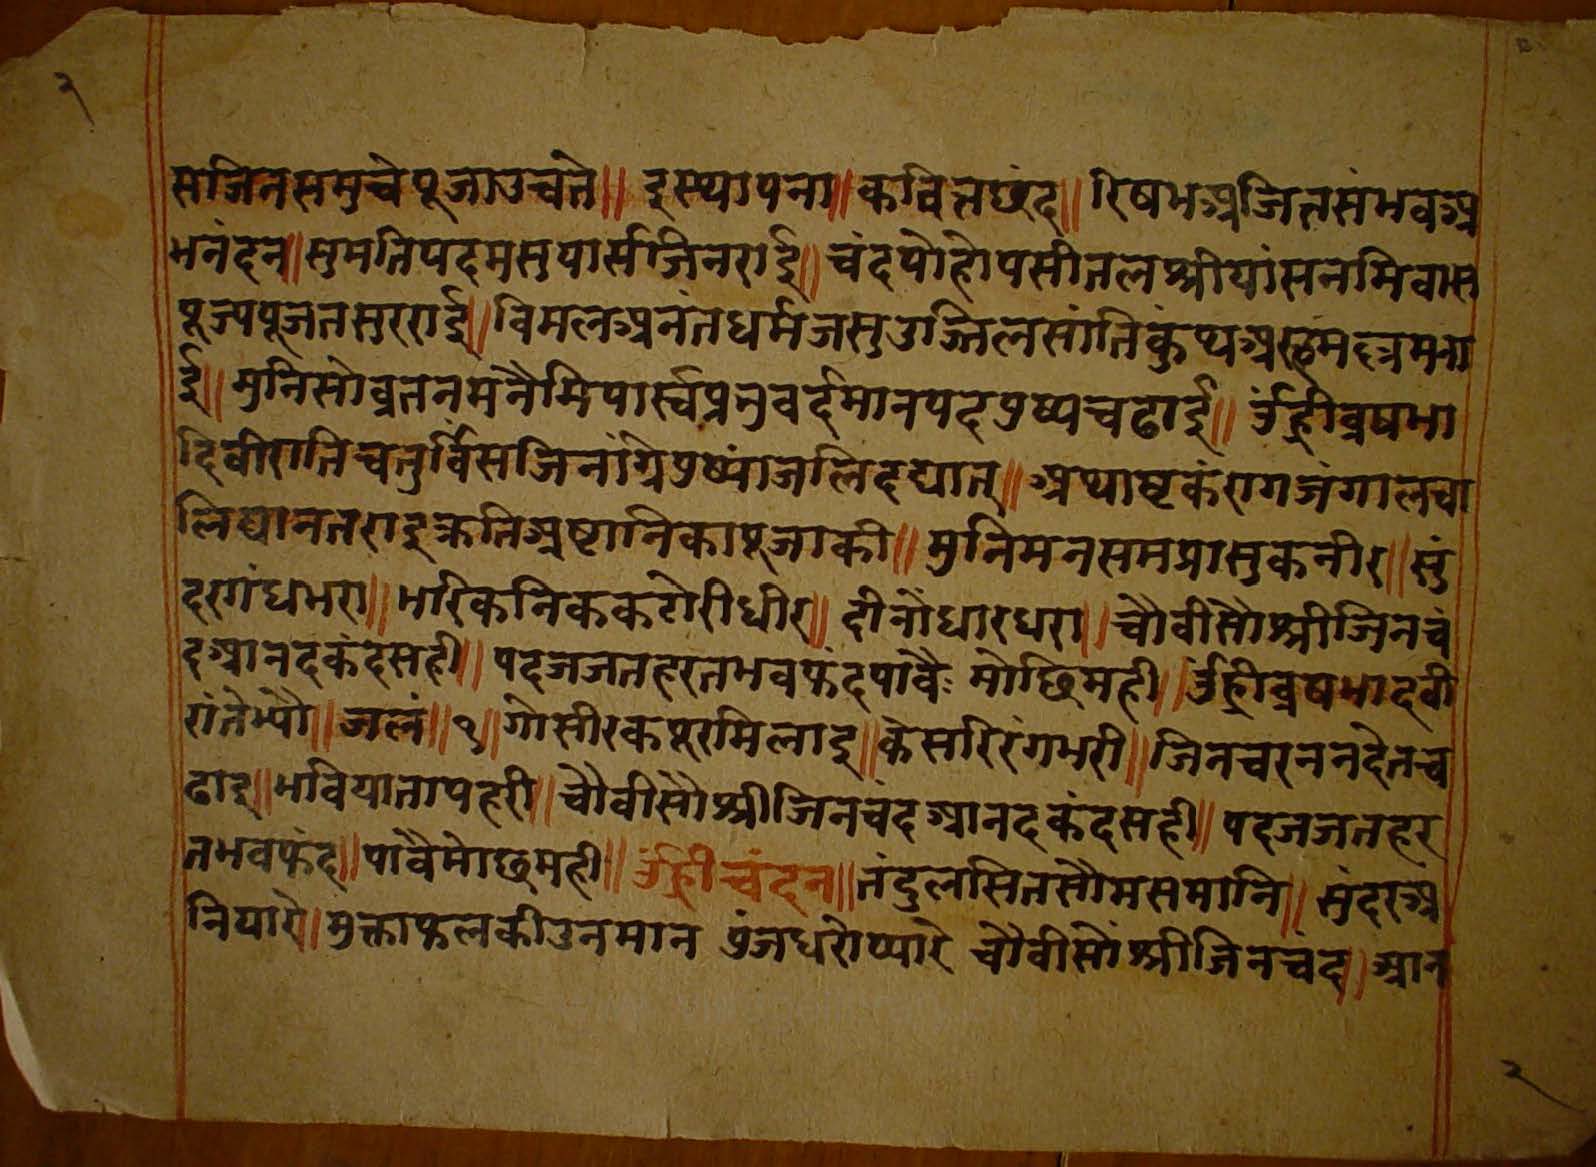 २
सजिनसमुचेपूजाउचते॥ इस्थापना॥ कवित्तछंद॥ रिषभअजितसंभवअ
भनंदन॥ सुमतिपदमसुपार्सजिनराई॥ चंदपोहोपसीतलश्रीयांसनमिवास
पूज्यपूजतसुरराई॥ विमलअनंतधर्मजसुउज्जिलसांतिकुंथअ
ई॥ मुनिसोव्रतनमनैमिपार्स्वप्रनुवर्द्दमानपदपुष्पचढाई॥ ॐह्रीव्रषभा
दिवीरातिचतुर्विंसजिनांग्रिपुष्पांजलिदद्यात्॥ अथाष्टकंरागजंगालचा
लिद्यानतराइक्रतिअष्टानिकापूजाकी॥ मुनिमनसमप्रासुकनीर॥ सुं
दरगंधभरा॥ भरिकनिककटोरीधीर॥ दीनौधारधरा॥ चौवीसौश्रीजिनचं
दआनदकंदसही॥ पदजजतहरतभवफंदपावैः मोछिमही॥ ॐह्रीव्रषभादवी
रांतेभ्यौ॥ जलं॥ १॥ गोसीरकपूरमिलाइ॥ केसरिरंगभरी॥ जिनचरननदेतच
ढाइ॥ भवियातापहरी॥ चौवीसौश्रीजिनचंदआनदकंदसही॥ पदजजतहर
तभवफंद॥ पावैमोछमही॥ ॐह्रीचंदन॥ तंदुलसितसौमसमानि॥ सुंदरअ
नियारे॥ मुक्ताफलकीउनमान पुंजधरोप्यारे चौवीसौंश्रीजिनचंद॥ आन
२